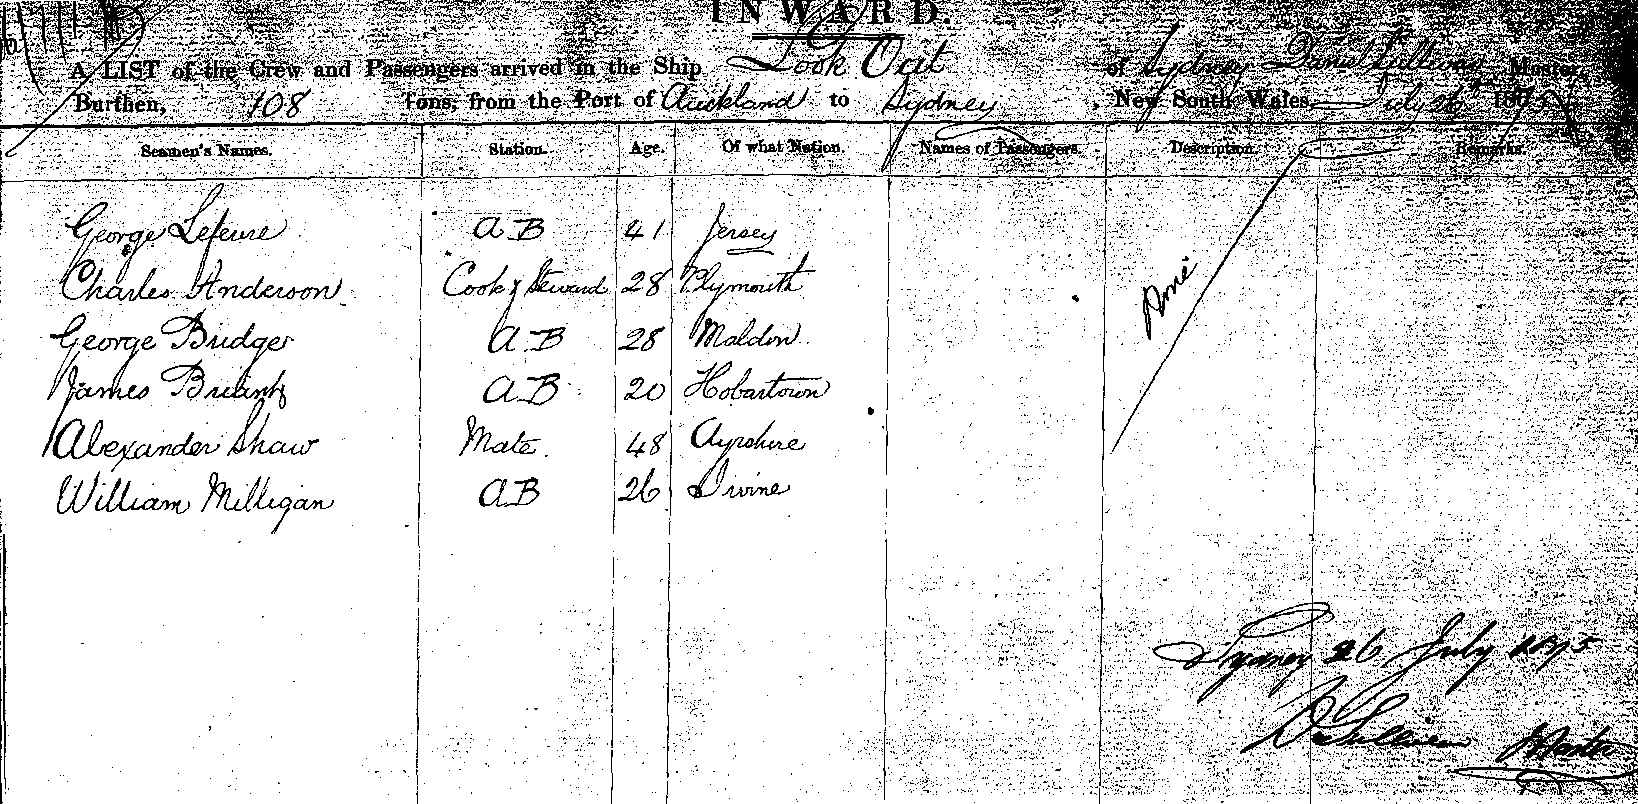 INWARD.
A LIST of the Crew and Passengers arrived in the Ship Look Out of Sydney Daniel Sullivan Master,
Burthen, 108 Tons, from the Port of Auckland to Sydney, New South Wales, July 26 1875
Seamen's Names. Station. Age. Of what Nation. Names of Passengers. Description. Remarks.
George Lefeure AB 41 Jersey
Charles Anderson Cook & Steward 28 Plymouth
George Bridger AB 28 Maldon
James AB 20 Hobartown
Alexander Shaw Mate 48 Ayrshire
William Milligan AB 26 Irvine
Sydney 26 July 1875
D Sullivan Master